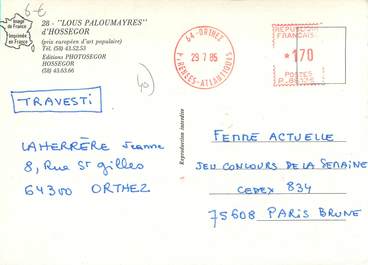 6 €
Image
de France
Imprimée
en France
28 - "LOUS PALOUMAYRES"
d'HOSSEGOR
(prix européen d'art populaire)
Tél. (58) 43.52.53
Editions PHOTOSEGOR
HOSSEGOR
(58) 43.63.66
40
TRAVESTI
LAHERRÈRE Jeanne
8, Rue St gilles
64300 ORTHEZ
Reproduction interdite
64-ORTHEZ
29 7 85
PYRENEES-ATLANTIQUES
REPUBLIQUE
FRANCAISE
*170
POSTES
FEMME ACTUELLE
JEU CONCOURS DE LA SEMAINE
CEDEX 834
75608 PARIS BRUNE